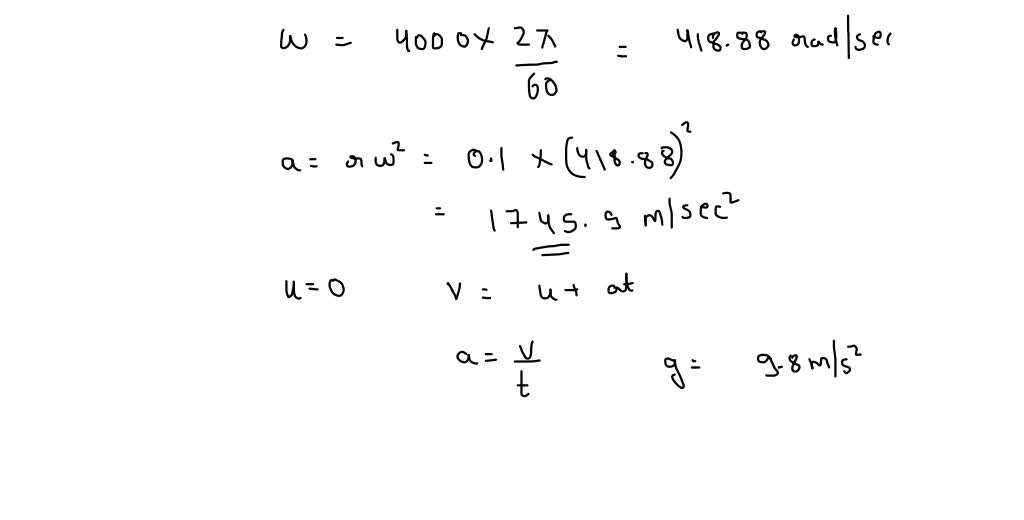 ω = 4000 × 2π/60 = 418.88 rad/sec
a = rω² = 0.1 × (418.88)²
= 1745.9 m/sec²
u=0 v = u+ at
a = v/t g = 9.8 m/s²